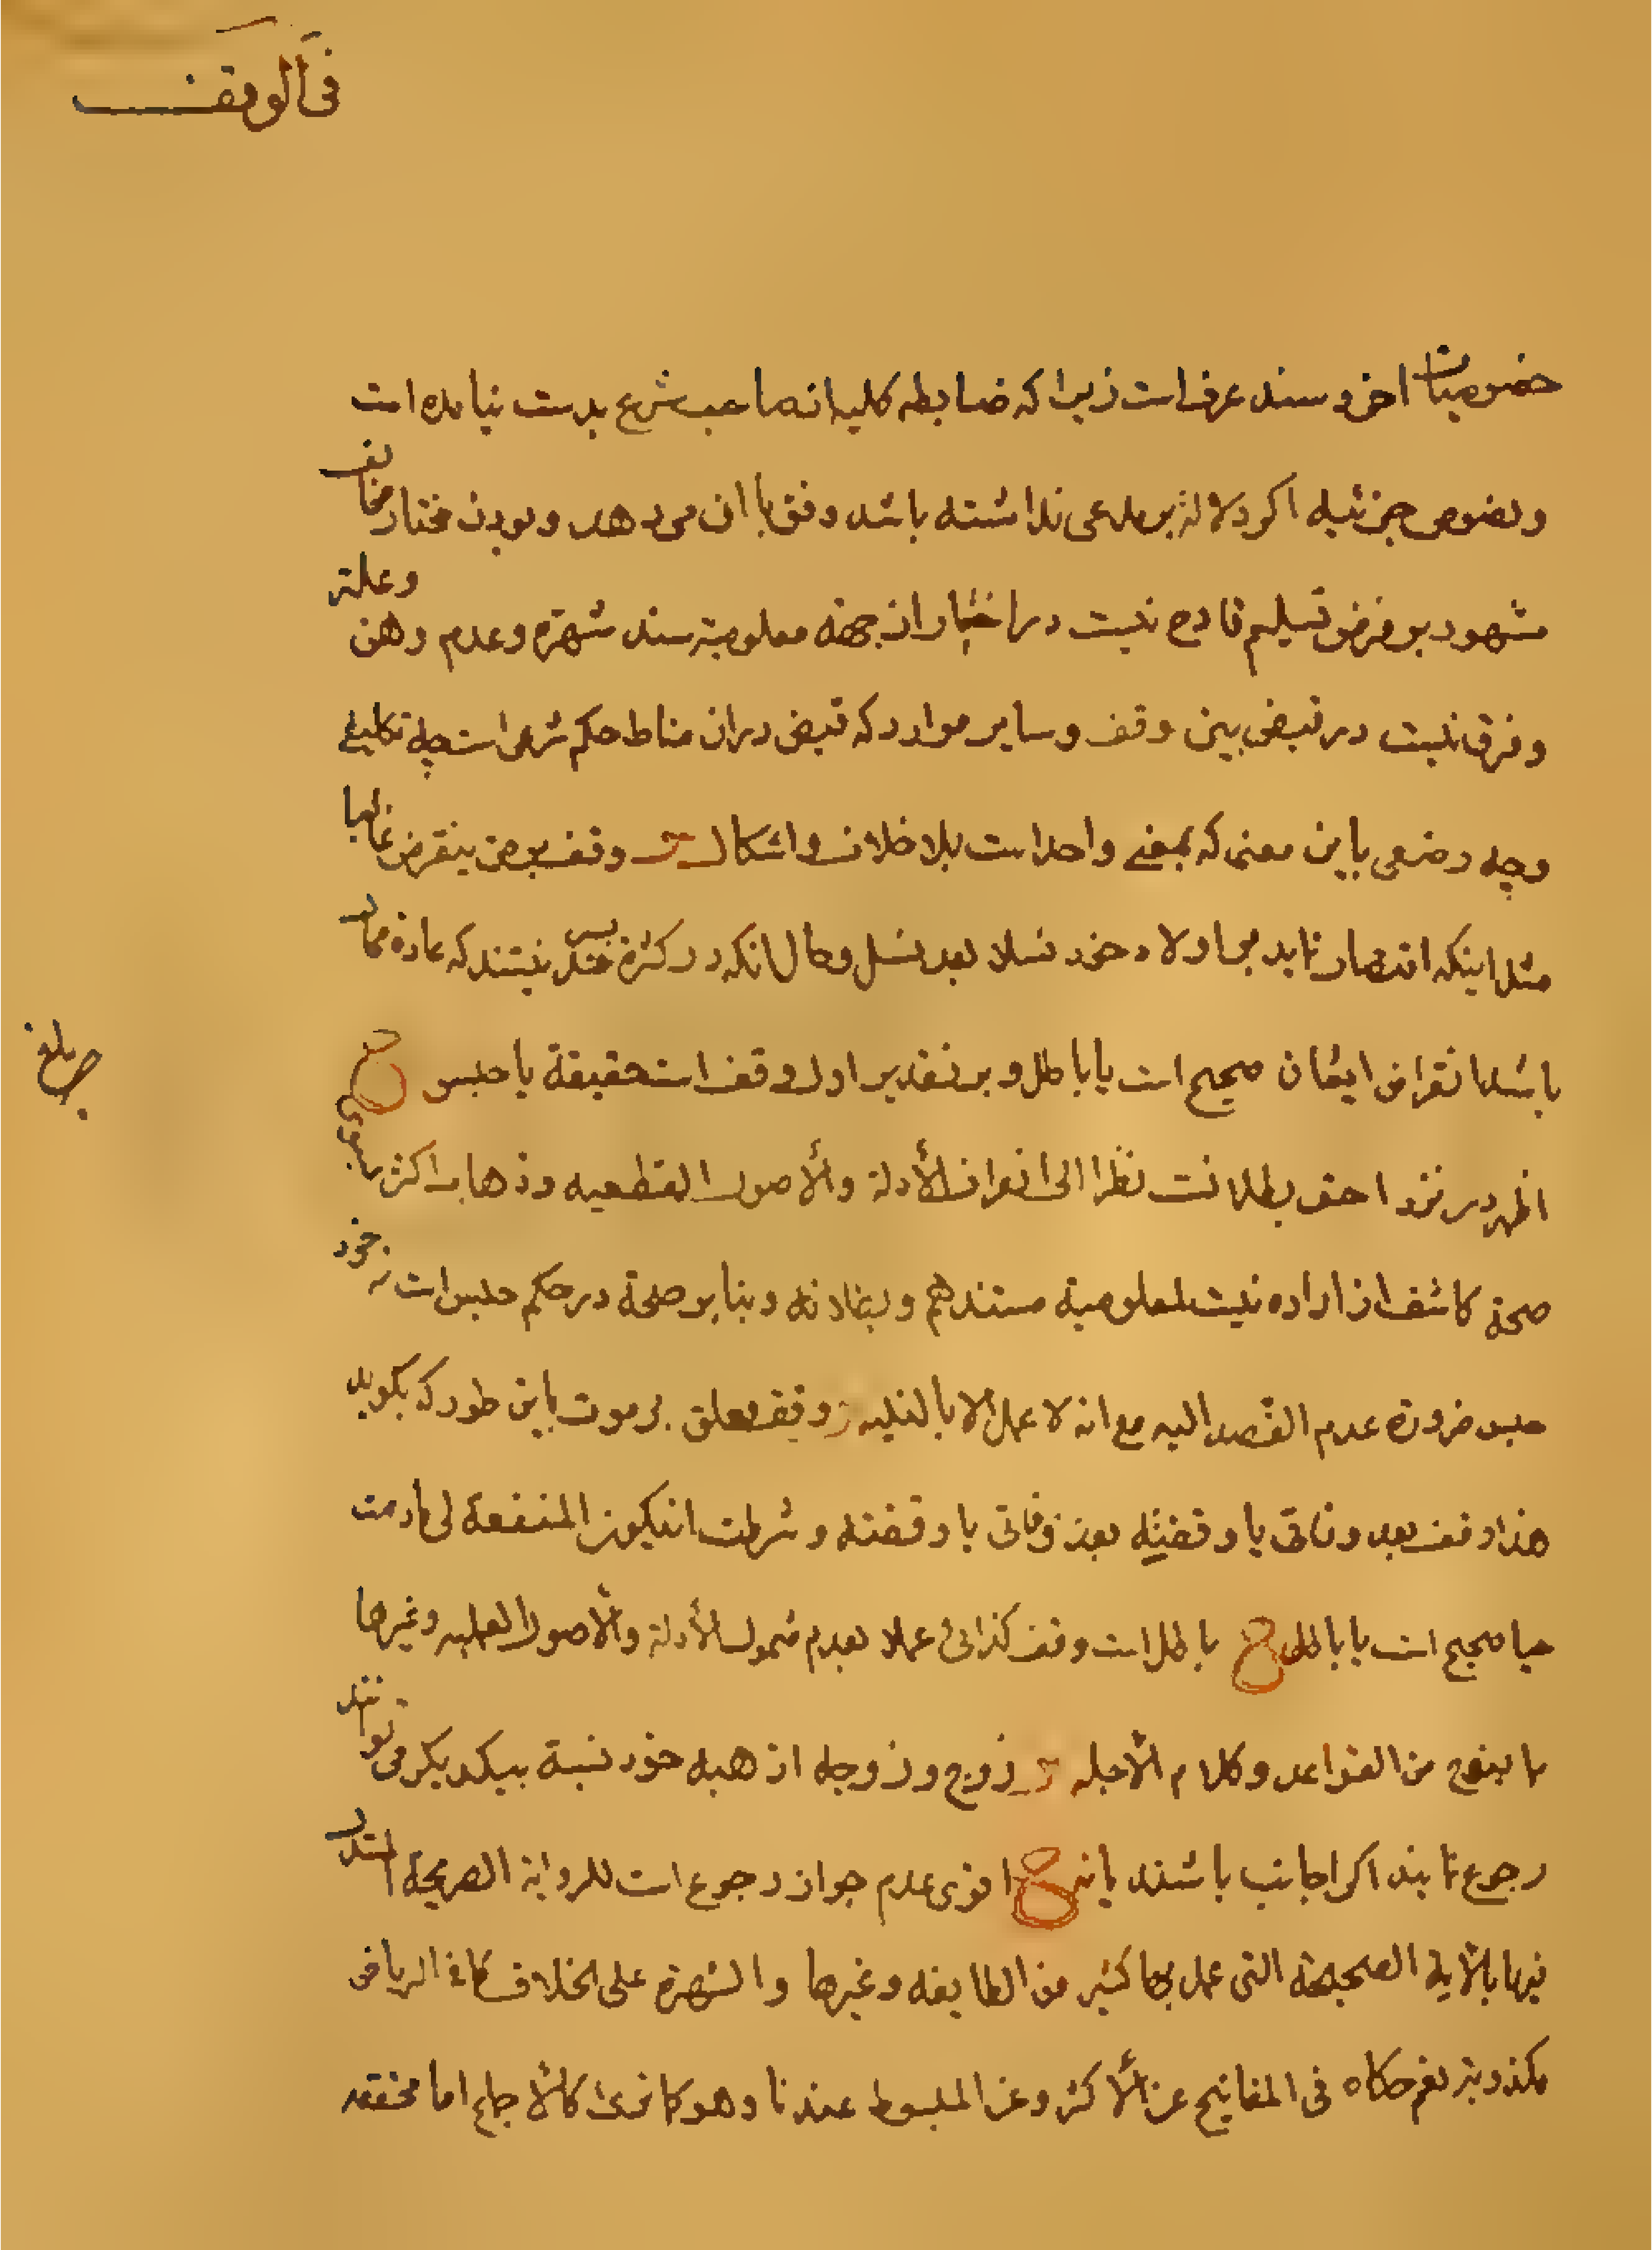 فی الوقف
خصوصیات اخر و سند عرف است زیرا که ضابطه کلیه از صاحب شرع بدست نیامده است
و نصوص جزئیه اکر دلالة بر مدعی نداشته باشد وفق با ان می دهد و بودن مختار مخالف
مشهور بر فرض تسلیم قادح نیست در اختیار از جهة معلومیة سند شهرة و عدم وهن وعلته
و فرق نیست در قبض بین وقف و سایر موارد که قبض در ان مناط حکم شرعی است چه تکلیفی
و چه وضعی باین معنی که بمعنی واحد است بلا خلاف و اشکال س وقف بر من ینقرض غالبا
مثل اینکه اقتصار نماید بر اولاد خود نسلا بعد نسل و حال انکه در کثرة بحدی نیستند که عادة محال
باشد انقراض ایشان صحیح است یا باطل و بر تقدیر اول وقف است حقیقة یا حبس ج
اظهر در نزد احقر بطلانست نظرا الی انصراف الأدلة والأصول القطعیه و ذهاب اکثر بسوی
صحة کاشف از اراده نیست لمعلومیة مستندهم و بنا بر صحة در حکم حبس است نه خود
حبس ضرورة عدم القصد الیه مع انه لا عمل الا بالنیه س وقف معلق بر موت باین طور که بکوید
هذا وقف بعد وفاتی یا وقفته بعد وفاتی یا وقفته و شرطت ان یکون المنفعة لی مادمت
حیا صحیح است یا باطل ج باطل است وقف کذائی عملا بعدم شمول الأدلة والأصول العملیه وغیرها
من القواعد و کلام الأجله س زوج و زوجه از هبه خود نسبة بیکدیکر می توانند
رجوع نمایند اکر اجانب باشند یا نه ج اقوی عدم جواز رجوع است للروایة الصریحة المستدل
فیها بالآیة الصحیحة التی عمل بها کثیر من الطایفه وغیرها والشهرة علی الخلاف کما فی الریاض
نعم حکاه فی المفاتیح عن الأکثر وعن المبسوط عندنا وهو کما تری کالأجماع اما محققه
بلغ